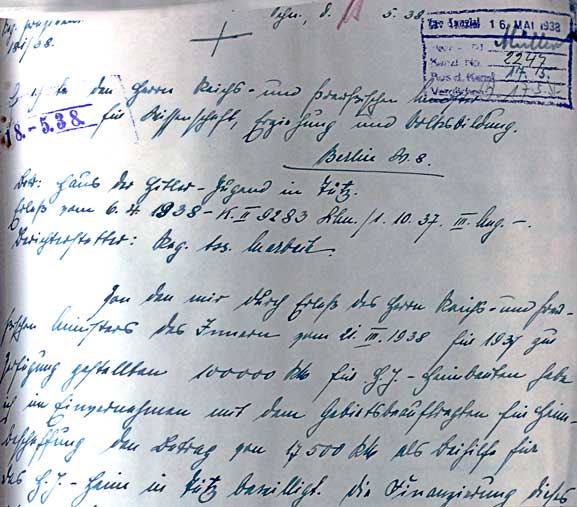 Schn., d. 5.38.
181/38.
Zur Kanzlei 16. MAI 1938
Müller
Kanzl. No. 2247
17.5.
Verglichen 17.5.
den Herrn Reichs- und Preußischen Minister
18.-5.38.
für Wissenschaft, Erziehung und Volksbildung.
Berlin W. 8.
Betr: Haus der Hitler-Jugend in Tütz.
Erlaß vom 6.4.1938 - K. II 9283 /1.10.37. III. Ang. -.
Berichterstatter: Reg. Ass.
Von den mir durch Erlaß des Herrn Reichs- und Preu-
ßischen Ministers des Innern vom 21. III. 1938 für 1937 zur
Verfügung gestellten 100000 RM für H.J.-Heimbauten habe
ich im Einvernehmen mit dem Gebietsbeauftragten für Heim-
beschaffung den Betrag von 17500 RM als Beihilfe für
das H.J.-Heim in Tütz bewilligt. Die Finanzierung dieses